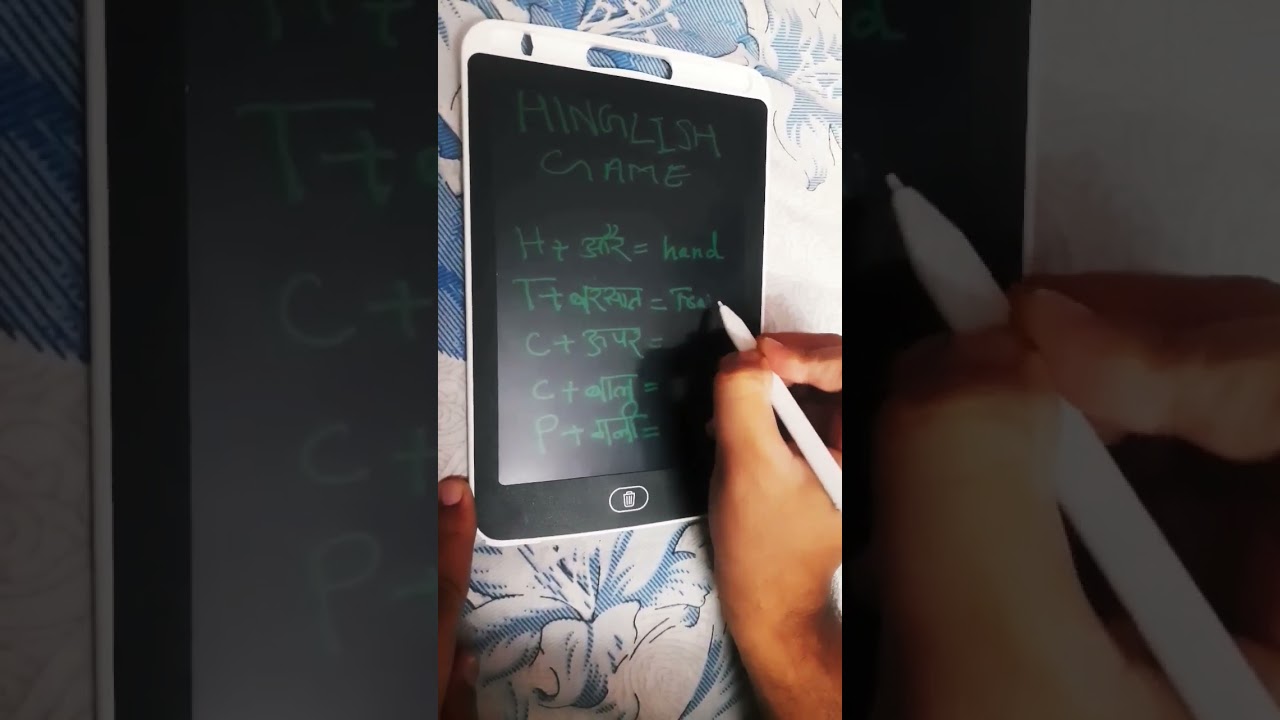 HINGLISH
GAME
H + और = hand
T + बरसात = Trai
C + ऊपर =
C + बाल =
P + गली =